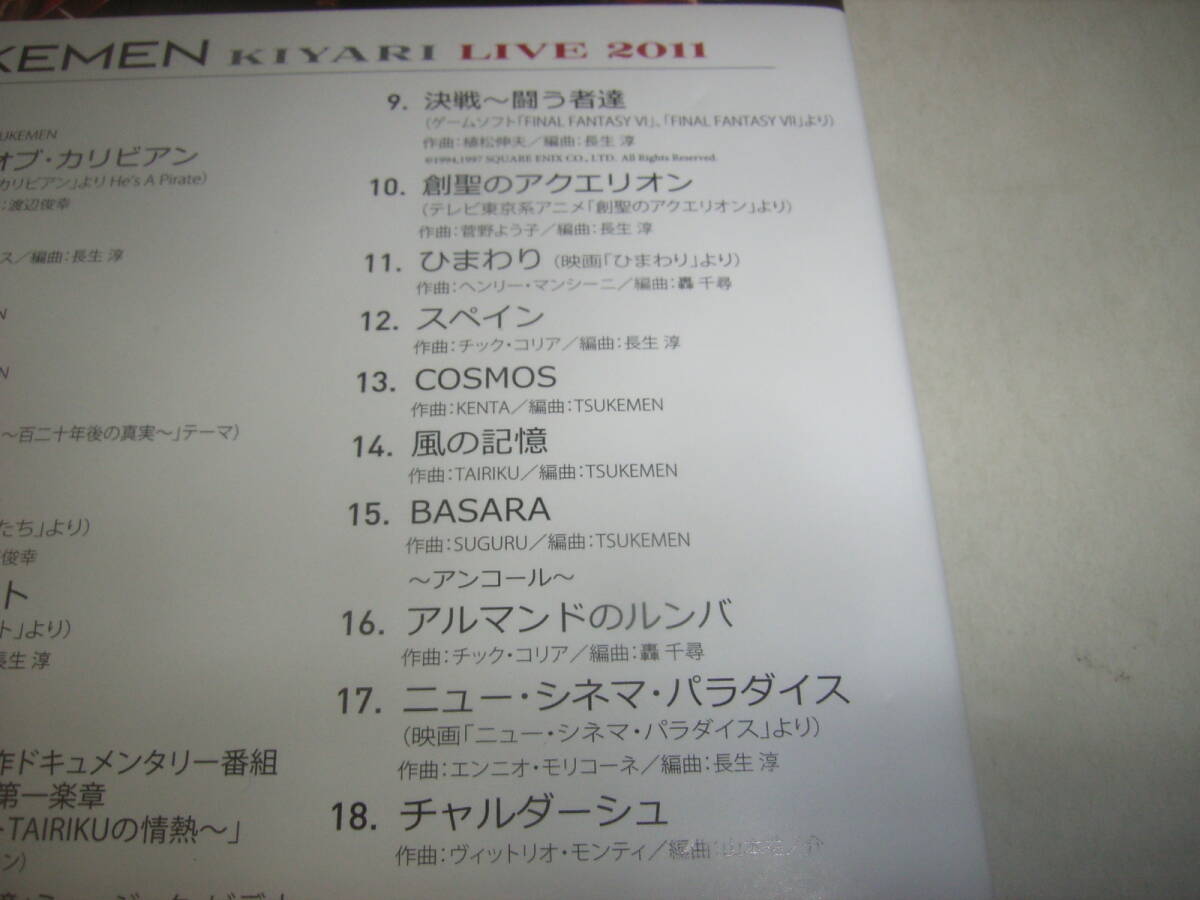 KEMEN KIYARI LIVE 2011
SUKEMEN
オブ・カリビアン
カリビアン」より He's A Pirate)
:渡辺俊幸
ス／編曲:長生 淳
N
N
～百二十年後の真実～」テーマ)
たち」より)
俊幸
ト
ト」より)
長生 淳
作ドキュメンタリー番組
第一楽章
TAIRIKUの情熱～」
ン)
9. 決戦～闘う者達
(ゲームソフト「FINAL FANTASY VI」、「FINAL FANTASY VII」より)
作曲:植松伸夫／編曲:長生 淳
©1994,1997 SQUARE ENIX CO., LTD. All Rights Reserved.
10. 創聖のアクエリオン
(テレビ東京系アニメ「創聖のアクエリオン」より)
作曲:菅野よう子／編曲:長生 淳
11. ひまわり (映画「ひまわり」より)
作曲:ヘンリー・マンシーニ／編曲:轟 千尋
12. スペイン
作曲:チック・コリア／編曲:長生 淳
13. COSMOS
作曲:KENTA／編曲:TSUKEMEN
14. 風の記憶
作曲:TAIRIKU／編曲:TSUKEMEN
15. BASARA
作曲:SUGURU／編曲:TSUKEMEN
～アンコール～
16. アルマンドのルンバ
作曲:チック・コリア／編曲:轟 千尋
17. ニュー・シネマ・パラダイス
(映画「ニュー・シネマ・パラダイス」より)
作曲:エンニオ・モリコーネ／編曲:長生 淳
18. チャルダーシュ
作曲:ヴィットリオ・モンティ／編曲: